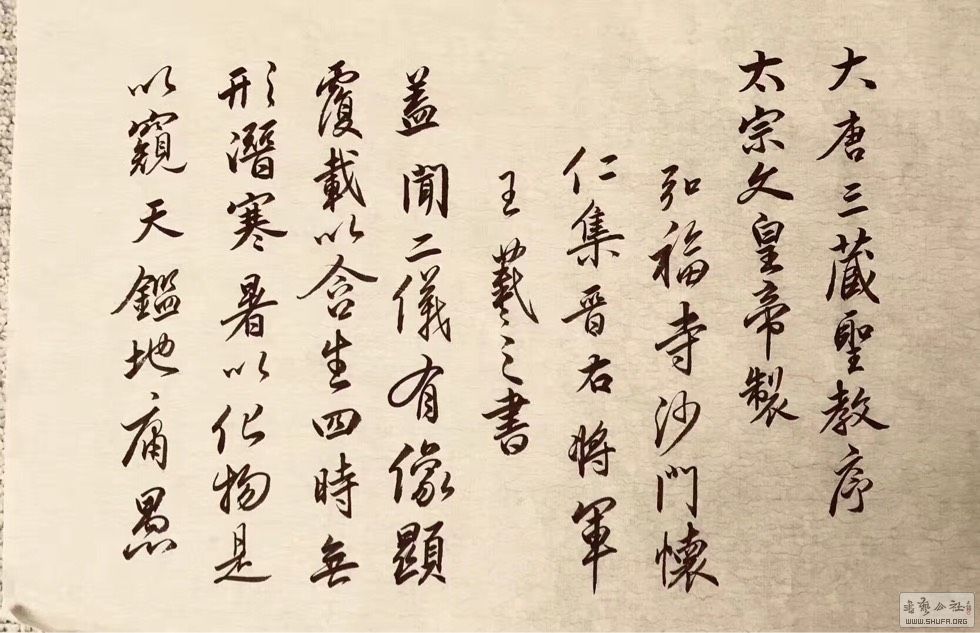 大唐三藏聖教序
太宗文皇帝製
弘福寺沙門懷
仁集晉右將軍
王羲之書
蓋聞二儀有像顯
覆載以含生四時無
形潛寒暑以化物是
以窺天鑑地庸愚
書藝公社
WWW.SHUFA.ORG